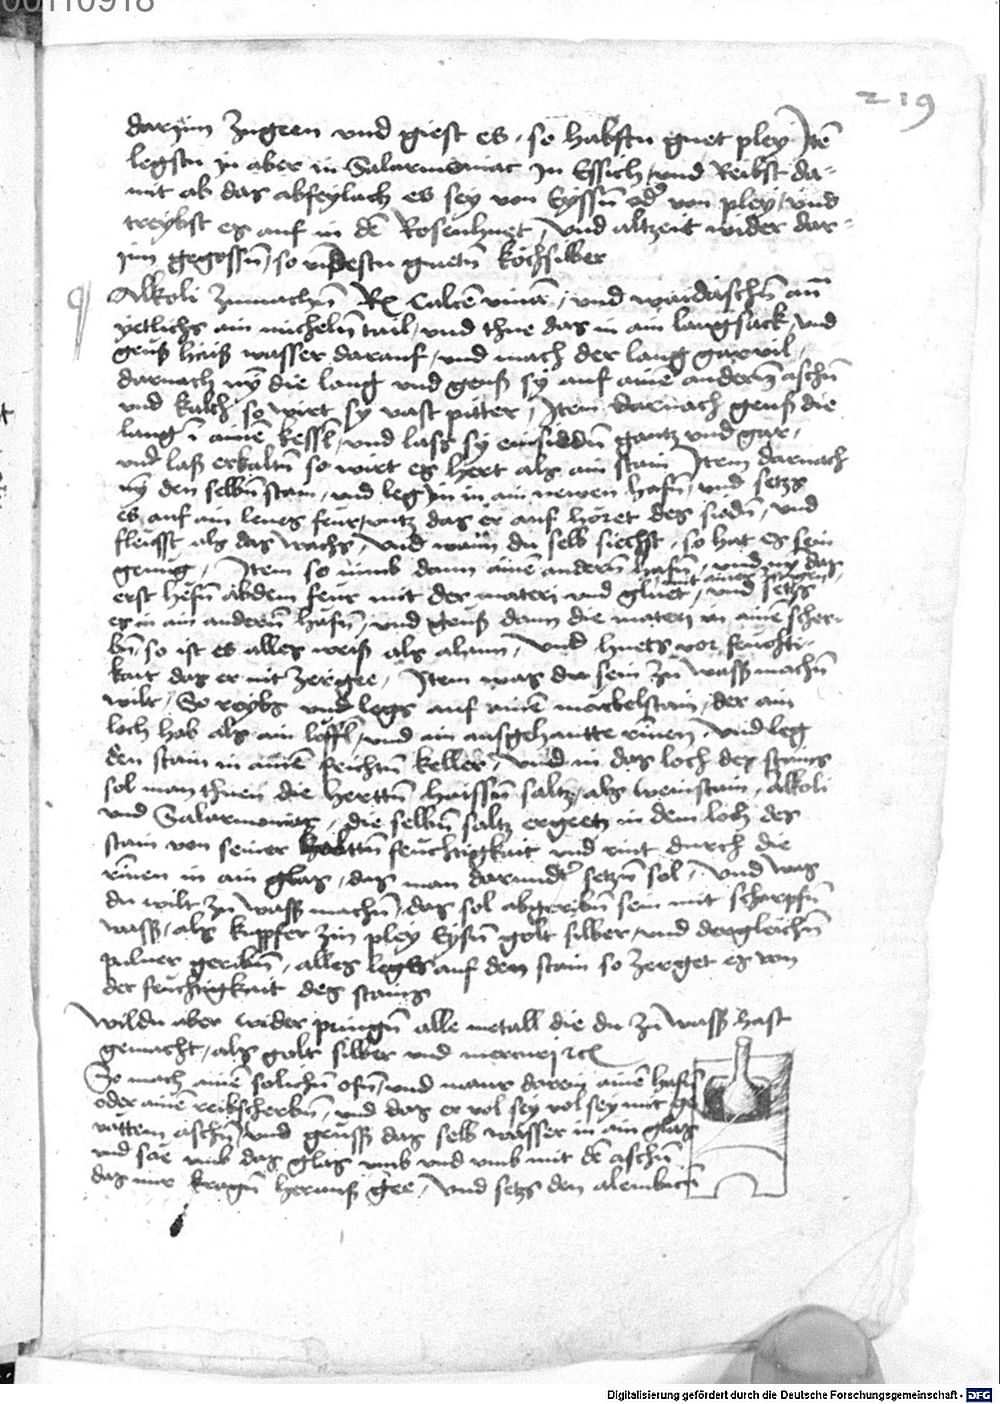 00110918
219
darjnn zugeen vnd giest es, so habstu guet pley Itē
legstu jn aber in Salarmoniac jn Essich, vnd Reibst da-
mit ab das abfeylach es sey von Eyssn̄ od' von pley, vnd
treybst es auf in dē Rosenhuet, vnd altzeit wider dar-
jnn gegossn̄, so vindestu guetn̄ kochsilber
Alkoli zumachn̄ Rx Calcē viuā, vnd waidaschn̄ an̄
yetlichs ain micheln̄ tail, vnd thue das in ain laugsack, vnd
geuß haiß wasser darauf, vnd mach der laug gar vil,
darnach nȳ die laug vnd geuß sy auf ainē andern̄ aschn̄
vnd kalch so wirt sy vast pitter, Item darnach geuß die
laug ī ainē kessl, vnd lass sy einsiddn̄ gantz vnd gar,
vnd laß erkaltn̄ so wirt es hert als ain stain Item darnach
nȳ den selbn̄ stain, vnd leg jn in ain newen hafn̄, vnd setzs
es auf ain leues feur, vntz das er auf höret des siedn̄, vnd
fleusst als das wachs, vnd wann du selb siechst, so hat es sein
genug, Item so nimb dann ainē andern̄ hafn̄, vnd nȳ das
mit ainer zangen,
erst hefn̄ ab dem feur mit der materi vnd gluet, vnd setzs
es in ain andern̄ hafn̄, vnd geuß dann die materj in ainē scher-
bn̄, so ist es alles weiß als alaun, vnd huets vor feuchti-
kait das er nit zergee, Item was du sein zu wasss machn̄
wilt, So reybs vnd legs auf ainē marbelstain, der ain
loch hab als ain löffl, vnd ain ausgehautte rinen, vnd leg
den stain in ainē feichtn̄ keller, vnd in das loch des stains
sol man thuen die herttn̄ haissn̄ saltz, als weinstain, Alkoli
vnd Salarmoniac, die selbn̄ saltz ergeetz in dem loch des
stain von seiner feuchtigkait vnd rint durch die
rinen in ain glas, das man darundt' setzn̄ sol, vnd was
du wilt zu wasss machn̄, das sol abgeribn̄ sein mit scharpfn̄
wasss, als kupffer zin pley Eysn̄ golt silber, vnd dergleichn̄
puluer geribn̄, alles legs auf den stain so zerget es von
der feuchtigkait des stains
Wildu aber wider pringn̄ alle metall die du zu wasss hast
gemacht, als golt silber vnd mercurj etc
So mach ainē solichn̄ ofn̄, vnd maur darein ainē hafn̄
oder ainē reibscherbn̄, vnd das er vol sey vol sey mit ge
rattem aschn̄, vnd geusss das selb wasser in ain glas
vnd sae vmb das glas vmb vnd vmb mit dē aschn̄
das nur kragn̄ herauß gee, vnd setzs den alembicū
Digitalisierung gefördert durch die Deutsche Forschungsgemeinschaft - DFG